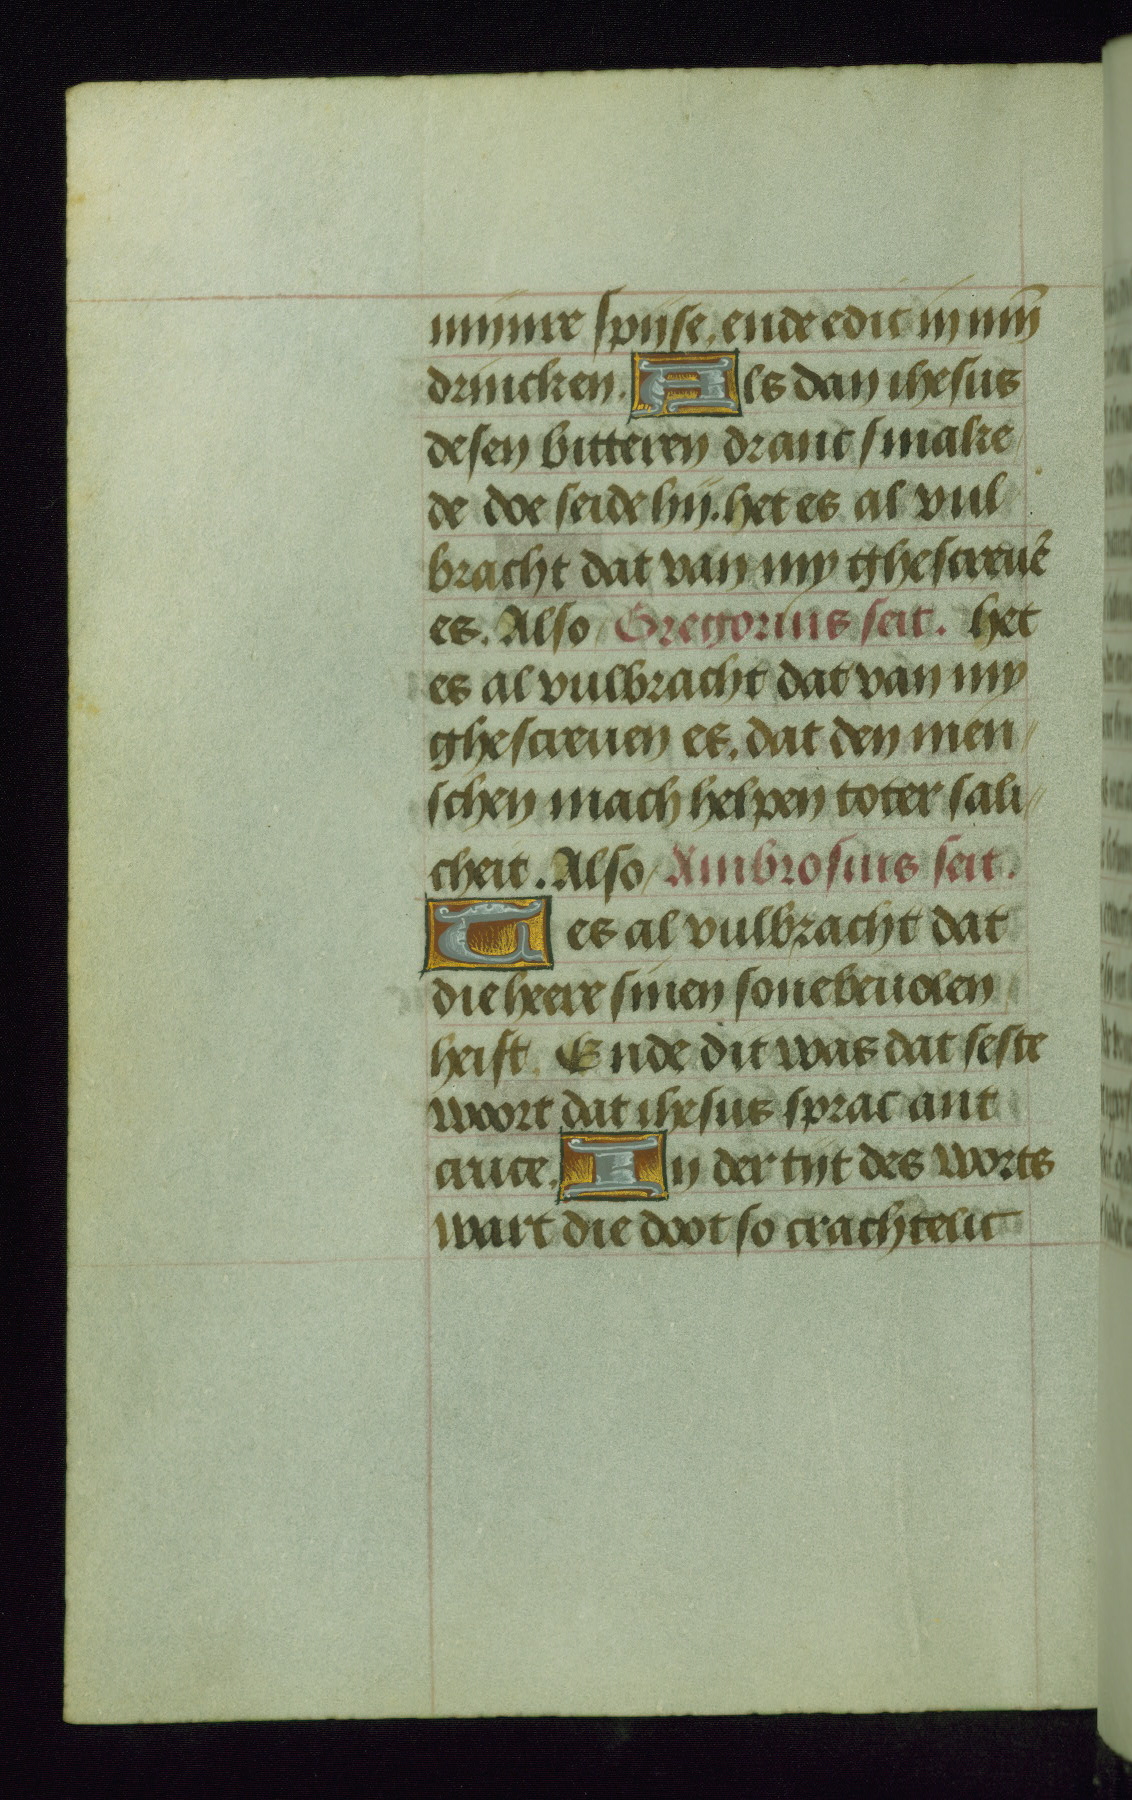 mijnre spijse, ende edic in mijn
drincken. Als dan ihesus
desen bitteren dranc smake
de doe seide hij. het es al vul
bracht dat van my ghescreuē
es. Also Gregorius seit. het
es al vulbracht dat van my
ghescreuen es, dat den men〃
schen mach helpen toter sali〃
cheit. Also Ambrosius seit.
T es al vulbracht dat
die heere sinen sone beuolen
heift. Ende dit was dat seste
woort dat ihesus sprac ant
cruce. In der tijt des worts
wart die doot so crachtelic